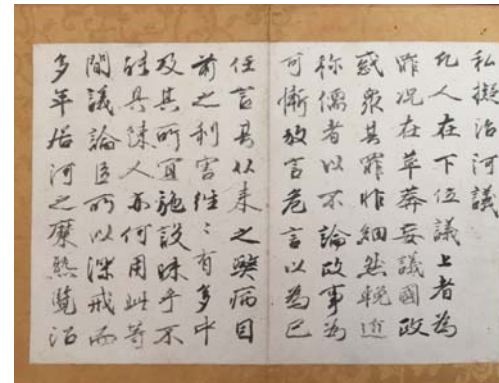 私擬治河議
凡人在下位議上者為
非況在草莽妄議國政
惑衆其罪非細然輓近
称儒者以不論政事為
可慚放言危言以為己
任言其从来之弊病目
前之利害往〻有多中
及其所宜施設昧乎不
能具陳人亦何用此等
間議論臣所以深戒而
多年居河之麋熟覧沿